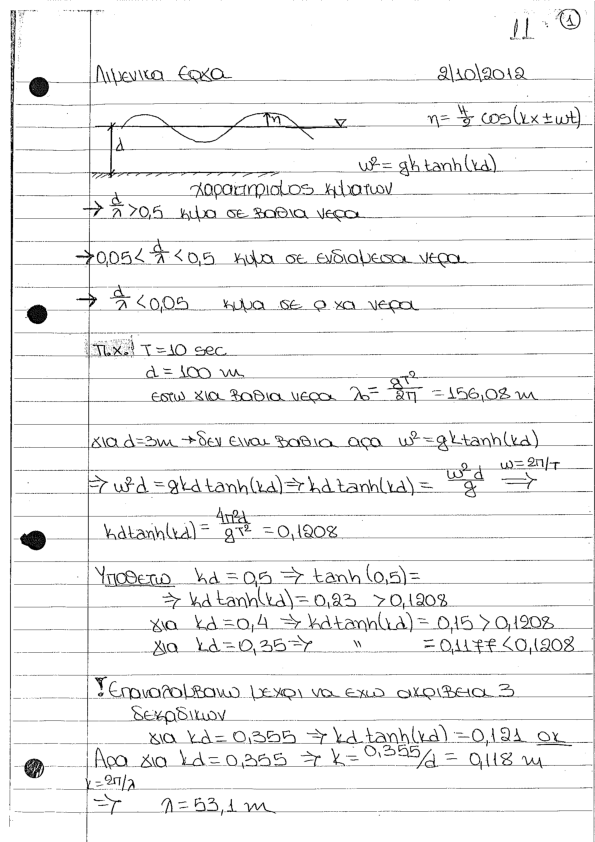 11 ①
Λιμενικα Εργα 2/10/2012
η
d
η = H/2 cos(kx ± ωt)
ω² = gk tanh(kd)
χαρακτηρισμος κυματων
→ d/λ > 0,5 κυμα σε βαθια νερα
→ 0,05 < d/λ < 0,5 κυμα σε ενδιαμεσα νερα
→ d/λ < 0,05 κυμα σε ρ χα νερα
π.χ. T = 10 sec
d = 100 m
εστω για βαθια νερα λ₀ = gT²/2π = 156,08 m
για d = 3m → δεν ειναι βαθια αρα ω² = gk tanh(kd)
⇒ ω²d = gkd tanh(kd) ⇒ kd tanh(kd) = ω²d/g ω = 2π/T ⇒
kd tanh(kd) = 4π²d/gT² = 0,1208
Υποθετω kd = 0,5 ⇒ tanh(0,5) =
⇒ kd tanh(kd) = 0,23 > 0,1208
για kd = 0,4 ⇒ kd tanh(kd) = 0,15 > 0,1208
για kd = 0,35 ⇒ " = 0,1177 < 0,1208
! Επαναλαμβανω μεχρι να εχω ακριβεια 3
δεκαδικων
για kd = 0,355 ⇒ kd tanh(kd) = 0,121 οκ
Αρα για kd = 0,355 ⇒ k = 0,355/d = 0,118 m
k = 2π/λ
⇒ λ = 53,1 m